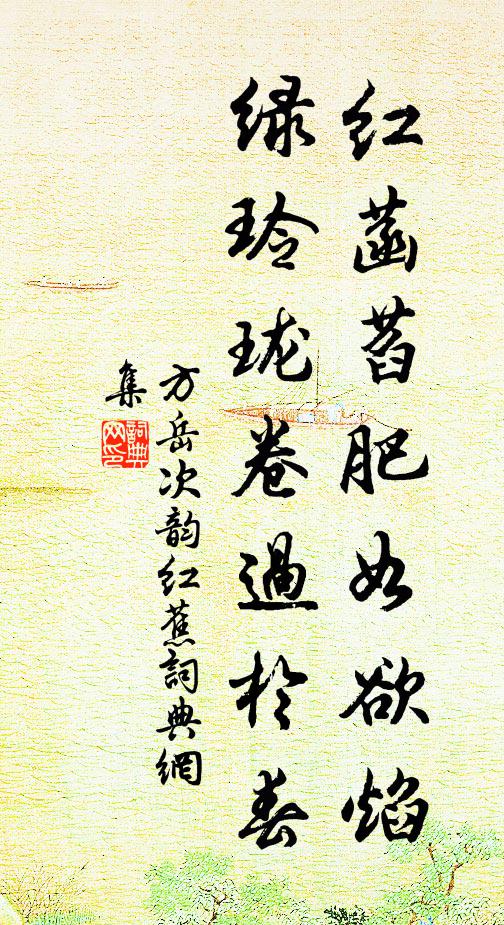 红菡萏肥如欲焰
绿玲珑卷过於春
方岳次韵红蕉詞典網
集
詞典网印